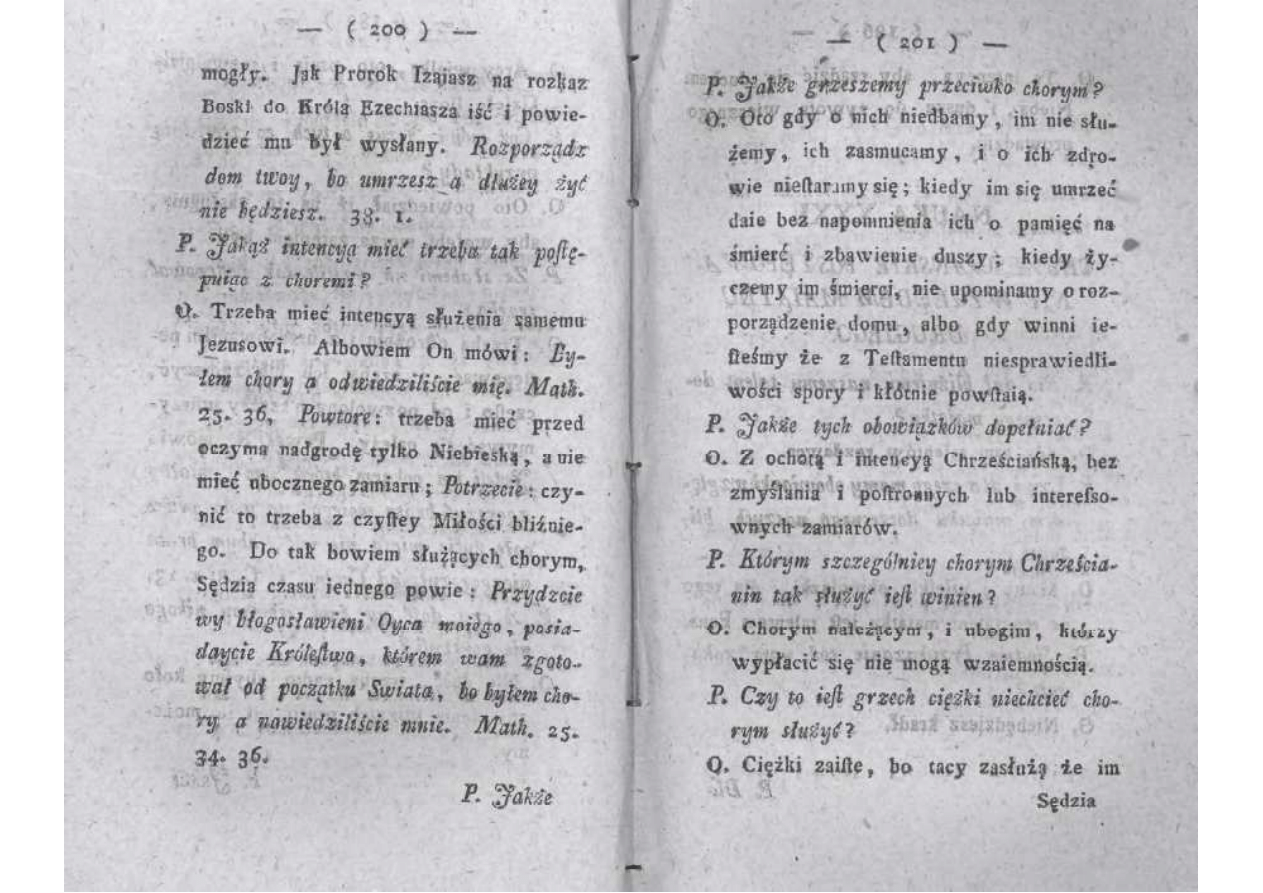 — ( 200 ) —
mogły. Jak Prorok Izaiasz na rozkaz
Boski do Królą Ezechiasza iść i powie-
dzieć mu był wysłany. Rozporządz
dom twoy, bo umrzesz a dłużey żyć
nie będziesz. 38. 1.
P. Jakąż intencyą mieć trzeba tak poſtę-
puiąc z choremi?
O. Trzeba mieć intencyą służenia samemu
Jezusowi. Albowiem On mówi: By-
łem chory a odwiedziliście mię. Math.
25. 36, Powtore: trzeba mieć przed
oczyma nadgrodę tylko Niebieską, a nie
mieć ubocznego zamiaru; Potrzecie: czy-
nić to trzeba z czyſtey Miłości bliźnie-
go. Do tak bowiem służących chorym,
Sędzia czasu iednego powie: Przydzcie
wy błogosławieni Oyca moiego, posia-
daycie Króleſtwo, którem wam zgoto-
wał od początku Swiata, bo byłem cho-
ry a nawiedziliście mnie. Math. 25.
34. 36.
P. Jakże
— ( 201 ) —
P. Jakże grzeszemy przeciwko chorym?
O. Oto gdy o nich niedbamy, im nie słu-
żemy, ich zasmucamy, i o ich zdro-
wie nieſtaramy się; kiedy im się umrzeć
daie bez napomnienia ich o pamięć na
śmierć i zbawienie duszy; kiedy ży-
czemy im śmierci, nie upominamy o roz-
porządzenie domu, albo gdy winni ie-
ſteśmy że z Teſtamentu niesprawiedli-
wości spory i kłótnie powſtaią.
P. Jakże tych obowiązków dopełniać?
O. Z ochotą i intencyą Chrześciańską, bez
zmyślania i poſtronnych lub intereſso-
wnych zamiarów.
P. Którym szczególniey chorym Chrześcia-
nin tak służyć ieſt winien?
O. Chorym należącym, i ubogim, którzy
wypłacić się nie mogą wzaiemnością.
P. Czy to ieſt grzech ciężki niechcieć cho-
rym służyć?
O. Ciężki zaiſte, bo tacy zasłużą że im
Sędzia